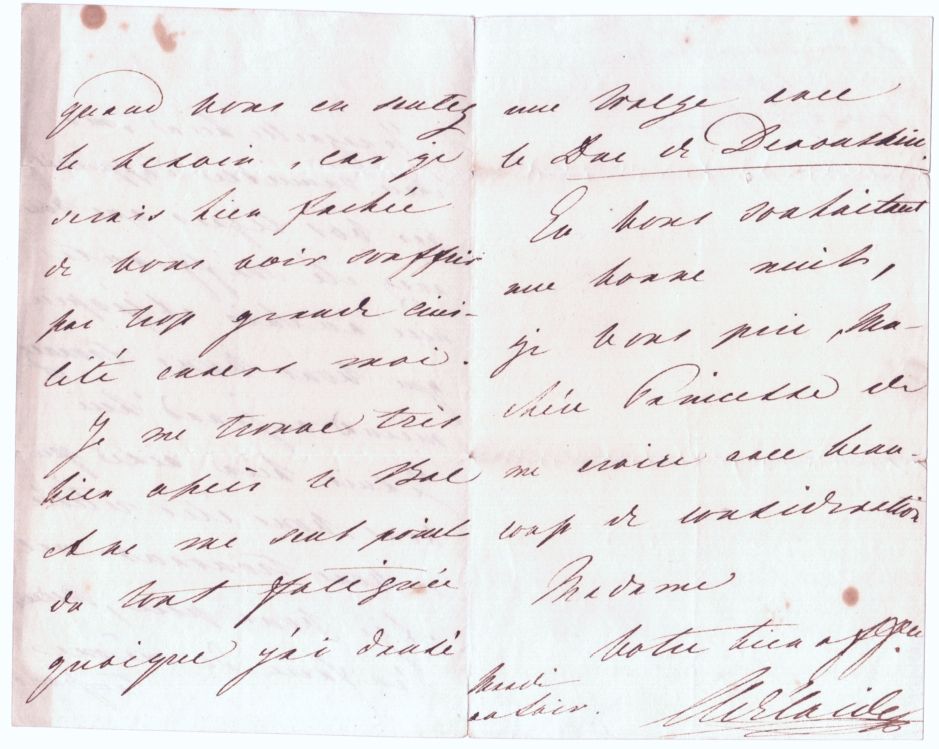 quand vous en sentez
le besoin, car je
serais bien fachée
de vous voir souffrir
par trop grande civi-
lité envers moi.
Je me trouve très
bien après le Bal
et ne me sens point
du tout fatiguée
quoique j'ai dansé
une walze avec
le Duc de Devonshire.
En vous souhaitant
une bonne nuit,
je vous prie, Ma-
chère Princesse de
me croire avec beau-
coup de considération
Madame
Votre bien affnée
Adélaide
Mardi
au Soir.